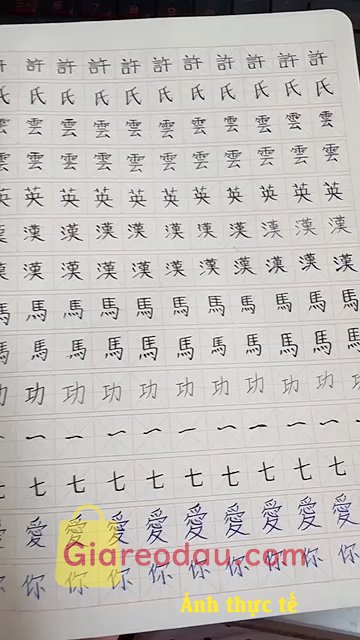 許 許 許 許 許 許 許 許 許 許
氏 氏 氏 氏 氏 氏 氏 氏 氏 氏
雲 雲 雲 雲 雲 雲 雲 雲 雲 雲
雲 雲 雲 雲 雲 雲 雲 雲 雲 雲
英 英 英 英 英 英 英 英 英 英
漢 漢 漢 漢 漢 漢 漢 漢 漢 漢
漢 漢 漢 漢 漢 漢 漢 漢 漢 漢
馬 馬 馬 馬 馬 馬 馬 馬 馬 馬
馬 馬 馬 馬 馬 馬 馬 馬 馬 馬
功 功 功 功 功 功 功 功 功 功
一 一 一 一 一 一 一 一 一
七 七 七 七 七 七 七 七 七
愛 愛 愛 愛 愛 愛 愛 愛 愛
Giareodau.com
你 你 你 你 你 你 你 你 你
Ảnh thực tế